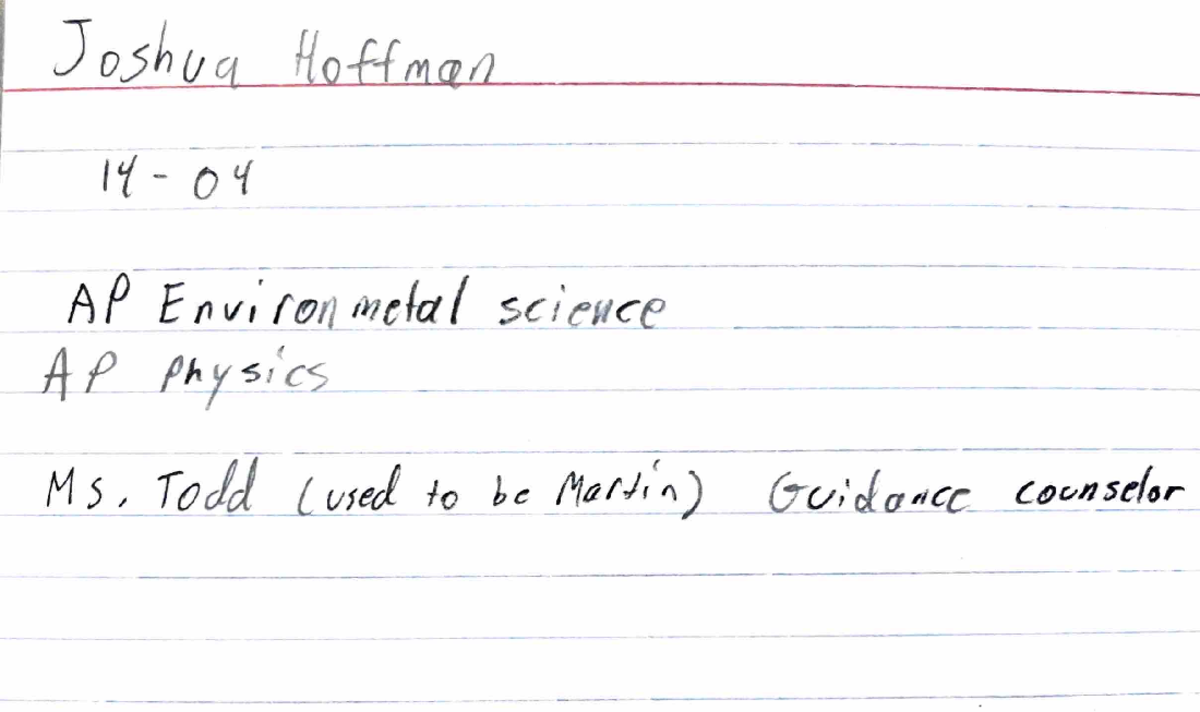 Joshua Hoffman
14-04
AP Environmetal science
AP Physics
Ms. Todd (used to be Martin) Guidance counselor